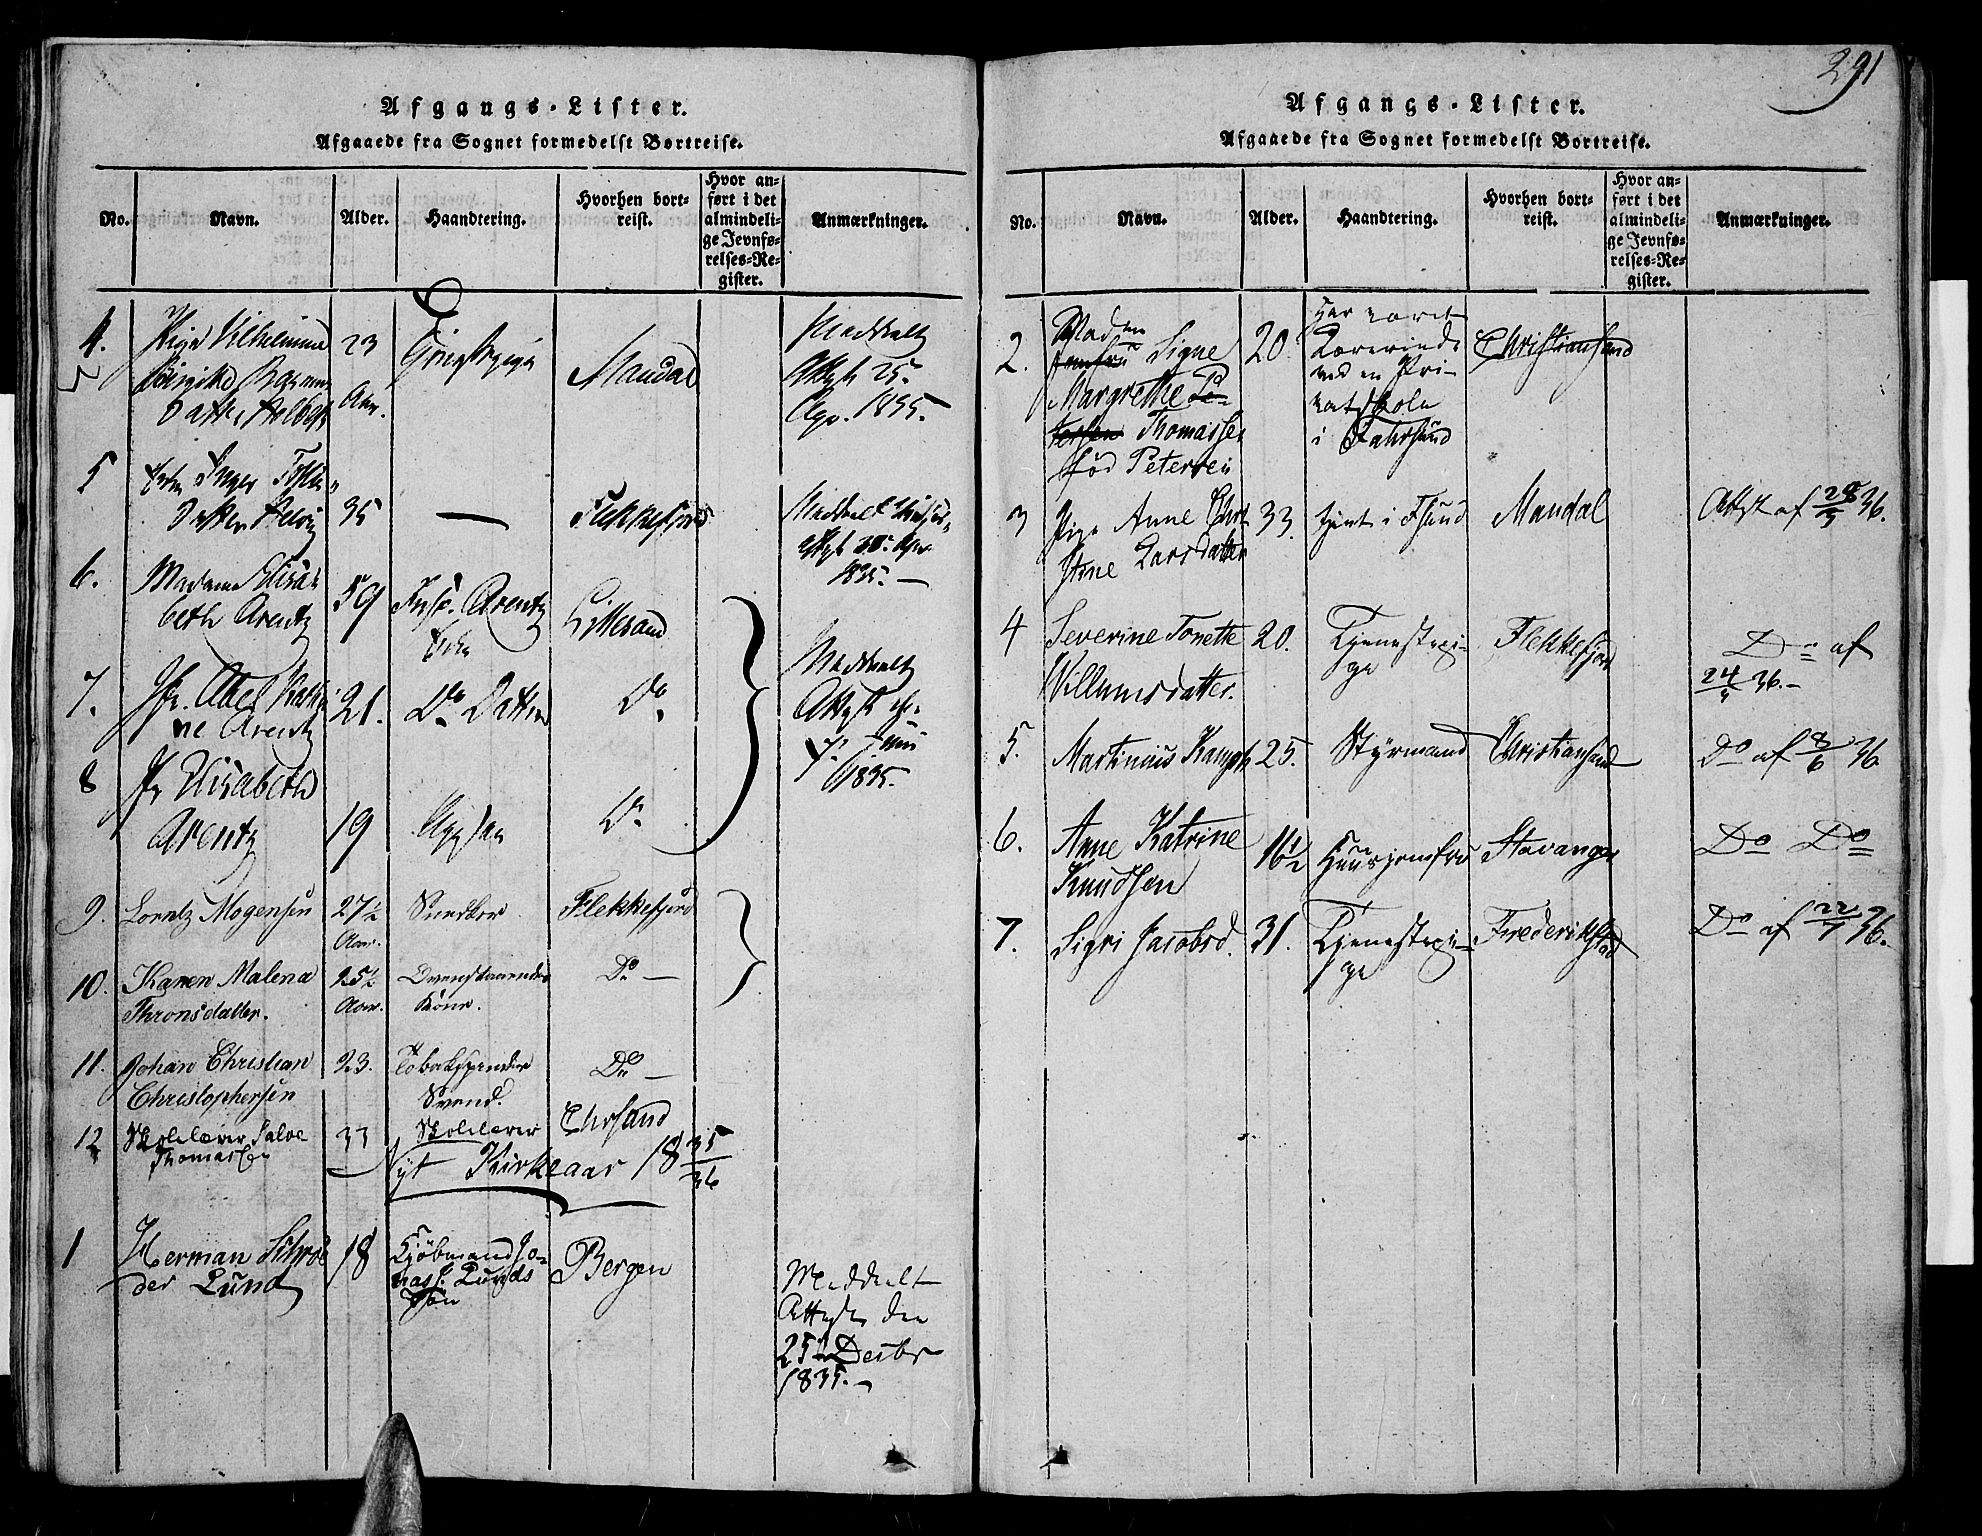 Afgangs-Lister.
Afgaaede fra Sognet formedelst Bortreise.
No. Navn. Alder. Haandtering. Hvorhen bortreist. Hvor anført i det almindelige Jevnførelses-Register. Anmærkninger.
4. Pige Vilhelmine 23 Mandal Meddeelt
Aar. Attest 25.
Apr. 1835.
5 Inger
datter 35 — Flekkefjord Meddeelt
1835. —
6. Madame Elisa-
beth Arentz 59 Insp. Arentz Lillesand
7. Jfr. Abel
ne Arentz 21. Do Datter Do Meddeelt
Attest
7. Juni
1835.
8 Jfr Elisabeth
Arentz 19 Do
9. Lorentz Mogensen 27½ Snedker Flekkefjord
Aar.
10. Karen Malena 25½ Do —
Thronsdatter. Aar. Kone.
11. Johan Christian 23. Tobakspinder Do —
Christophersen Svend.
12 Skolelærer Salve 33 Skolelærer Chrsand
Thomassen
Nyt Kirkeaar 18 35/36
1 Herman Schrø 18 Kjøbmand Jo- Bergen
der Lund nass. Lunds
Søn
Meddeelt
Attest den
25 Decbr
1835. —
291
Afgangs-Lister.
Afgaaede fra Sognet formedelst Bortreise.
No. Navn. Alder. Haandtering. Hvorhen bortreist. Hvor anført i det almindelige Jevnførelses-Register. Anmærkninger.
2. Madm Har været
Jomfru Signe 20. Lærerinde Christiansand
Margrethe Pe- ved en Pri-
tersen Thomassen vatskole
fød Petersen i Fahrsund
3 Pige Anne Chri 33. tjent i Fsund Mandal Attest af 28/3 36.
stine Larsdatter
4 Severine Tonette 20. Tjenestepi- Flekkefjord Do af
Willumsdatter. ge 36. —
5. Martinius Kamph 25. Styrmand Christiansand Do af 8/6 36
6. Anne Katrine 16½ Huusjomfru Stavanger Do Do
Knudsen
7. Sigri Jacobsd. 31. Tjenestepi- Frederikstad Do af 22/7 36.
ge